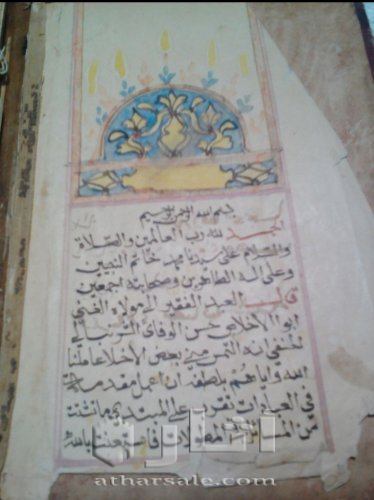 بسم الله الرحمن الرحيم
الحمد لله رب العالمين والصلاة
والسلام على سيدنا محمد خاتم النبيين
وعلى اله الطاهرين وصحابته اجمعين
قال العبد الفقير الى مولاه الغني
ابو الاخلاص حسن الوفاى الشرنبلالي
الحنفي انه التمس مني بعض الاخلا عاملنا
الله واياهم بلطفه ان اعمل مقدمة
في العبادات تقرب على المبتدي ما تشتت
من المسائل في المطولات فاستعنت بالله
آثار
atharsale.com